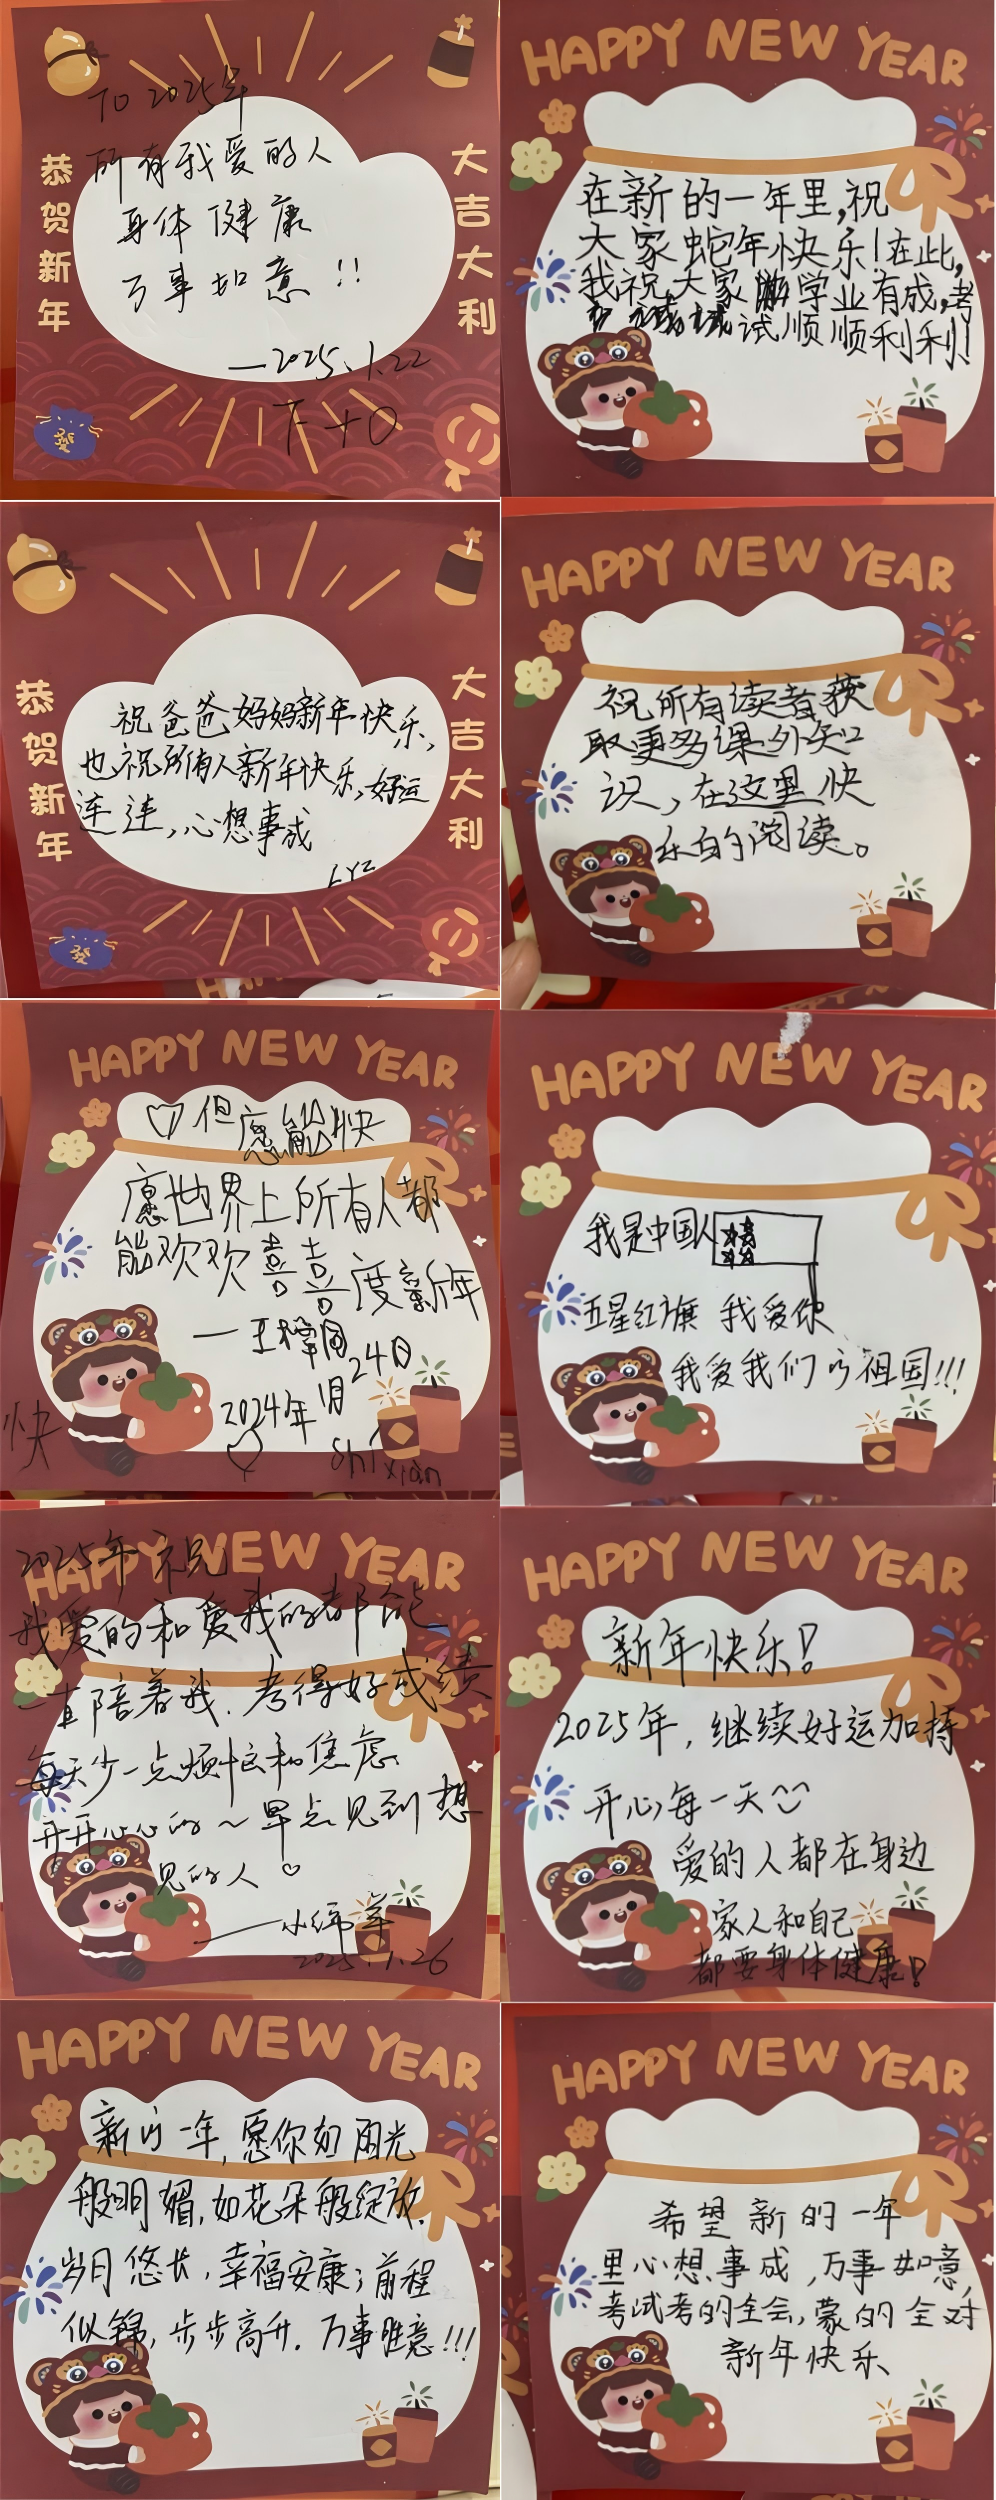 TO 2025年
所有我爱的人
身体健康
万事如意!!
—2025.1.22
恭贺新年
大吉大利
HAPPY NEW YEAR
在新的一年里,祝
大家蛇年快乐!在此,
我祝大家学业有成,考
试顺顺利利!
恭贺新年
大吉大利
祝爸爸妈妈新年快乐,
也祝所有人新年快乐,好运
连连,心想事成
LYZ
HAPPY NEW YEAR
祝所有读者获
取更多课外知
识,在这里快
乐的阅读。
HAPPY NEW YEAR
但愿能快
愿世界上所有人都
能欢欢喜喜度新年
2024年1月24日
shixian
快
HAPPY NEW YEAR
我是中国人
五星红旗 我爱你
我爱我们的祖国!!!
HAPPY NEW YEAR
2025年 祝
我爱的和爱我的都能
一直陪着我.考得好成绩
每天少一点烦恼和焦虑
开开心心的~早点见到想
见的人♡
2025.1.26
HAPPY NEW YEAR
新年快乐!
2025年,继续好运加持
开心每一天
爱的人都在身边
家人和自己
都要身体健康!
HAPPY NEW YEAR
新的一年,愿你如阳光
般明媚,如花朵般绽放.
岁月悠长,幸福安康;前程
似锦,步步高升.万事胜意!!!
HAPPY NEW YEAR
希望新的一年
里心想事成,万事如意,
考试考的全会,蒙的全对
新年快乐